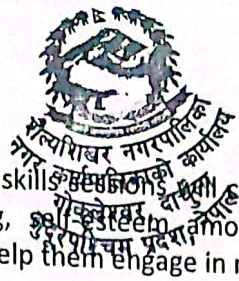 शैल्यशिखर नगरपालिका
नगर कार्यपालिकाको कार्यालय
गोकुलेश्वर, दार्चुला
सुदूरपश्चिम प्रदेश, नेपाल
skills sessions will
self-esteem, amo
elp them engage in